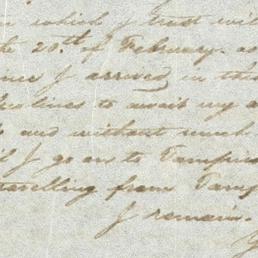 which I trust will
the 20th of February. as
I arrived in this
lines to await my a
and without much
I go on to Tampico
travelling from Tamp
I remain.